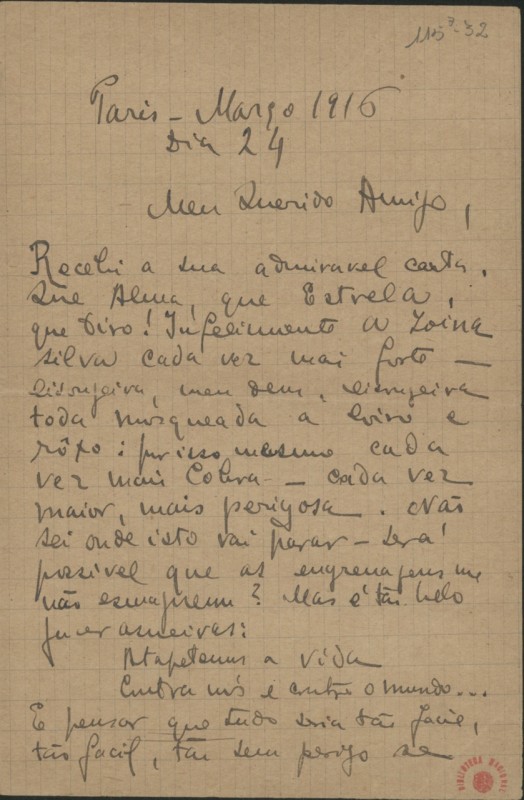 115³-32
Paris – Março 1916
Dia 24
Meu Querido Amigo,
Recebi a sua admiravel carta.
Que Alma, que Estrela,
que Oiro! Infelizmente a Zoina
silva cada vez mais forte –
lisongeira, meu Deus, lisongeira
toda mosqueada a loiro e
rôxo: por isso mesmo cada
vez mais Cobra – cada vez
maior, mais perigosa. Não
sei onde isto vai parar – será
possivel que as engrenagens me
não esmaguem? Mas é tão belo
fazer asneiras:
Atapetemos a vida
Contra nós e contra o mundo...
E pensar que tudo seria tão facil,
tão facil, tão sem perigo se
BIBLIOTECA NACIONAL